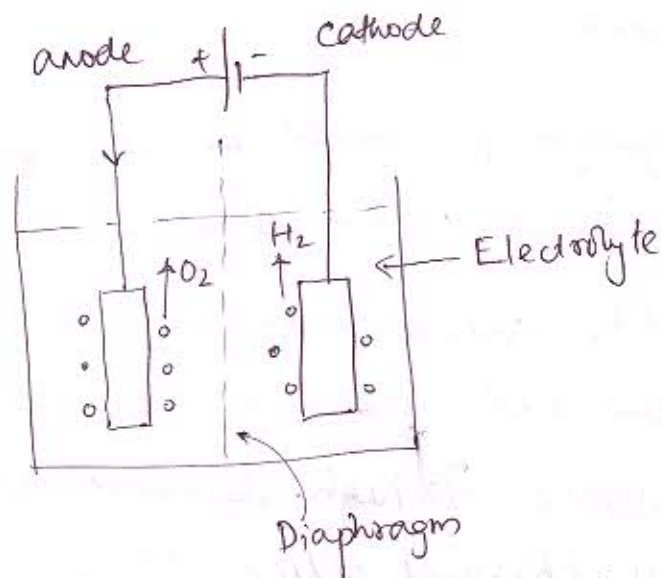 anode + - cathode
O2
H2
Electrolyte
Diaphragm